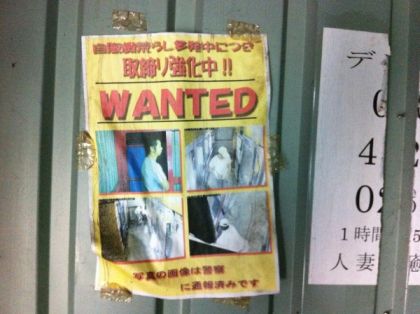 自販機荒らし多発中につき
取締り強化中!!
WANTED
写真の画像は警察
に通報済みです
デ
0
4
2
02
5
1時間
5
人妻